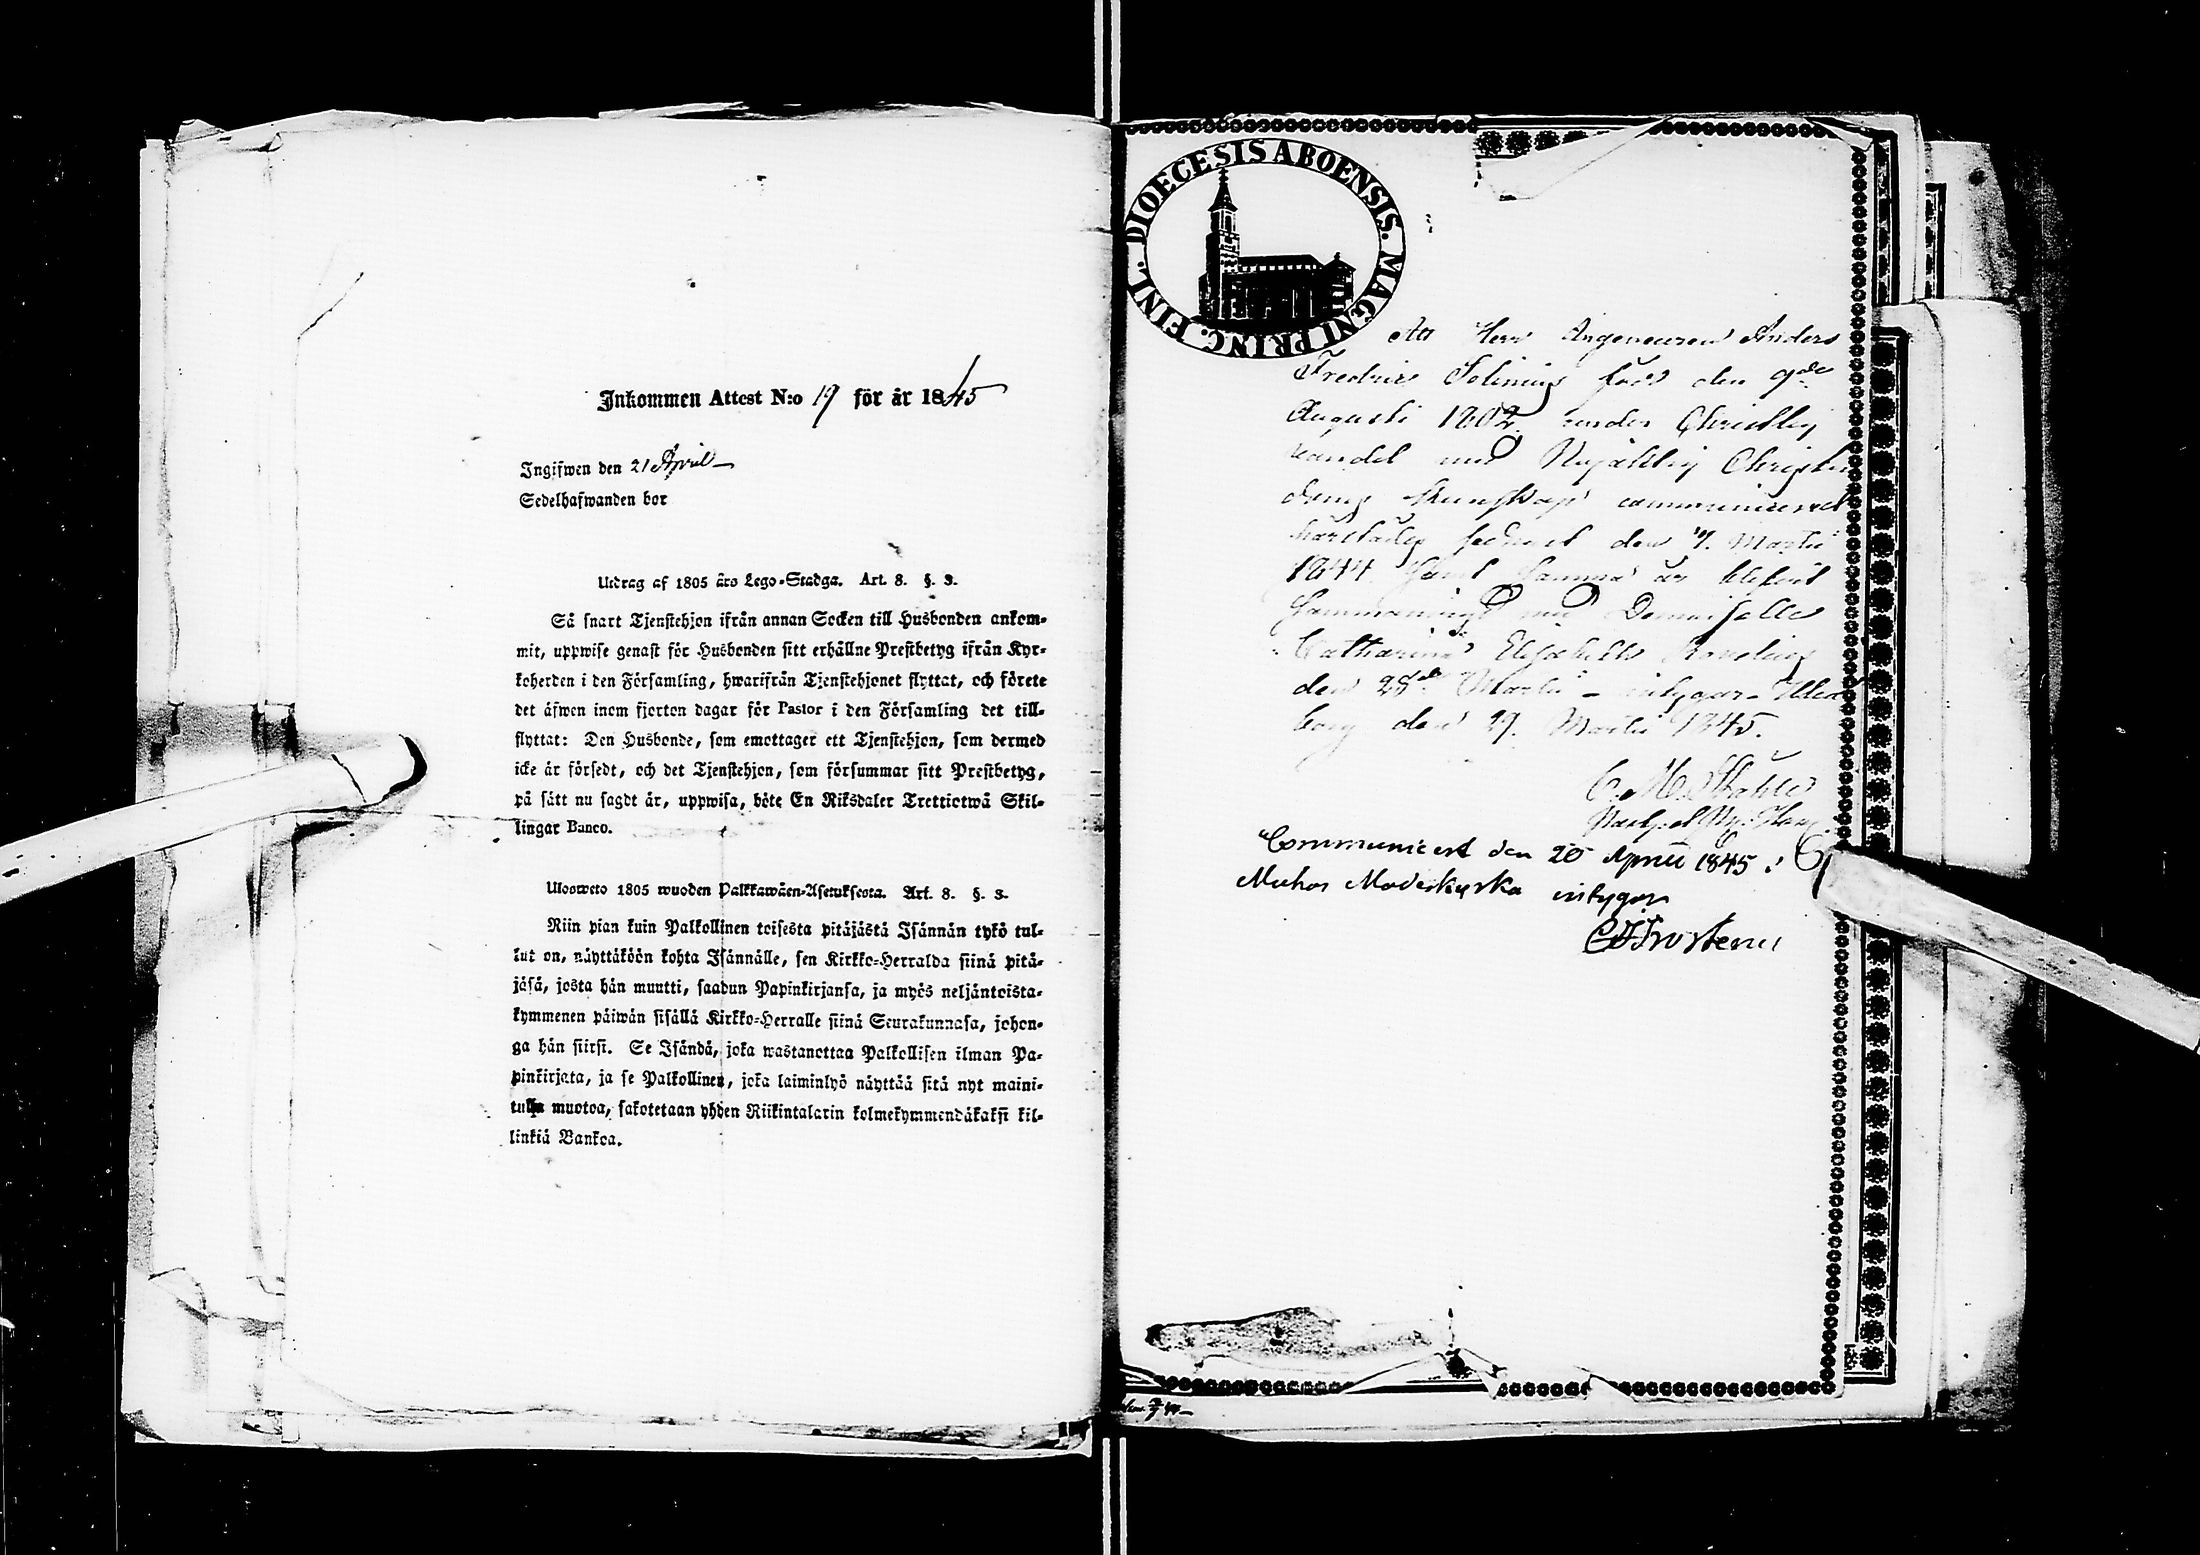 Inkommen Attest N:o 19 för år 1845
Ingifwen den 21 April
Sedelhafwanden bor
Utdrag af 1805 års Lego-Stadga. Art. 8. §. 3.
Så snart Tjenstehjon ifrån annan Socken till Husbonden ankom-
mit, uppwise genast för Husbonden sitt erhållne Prestbetyg ifrån Kyr-
koherden i den Församling, hwarifrån Tjenstehjonet flyttat, och förete
det äfwen inom fjorton dagar för Pastor i den Församling det till-
flyttat: Den Husbonde, som emottager ett Tjenstehjon, som dermed
icke är försedt, och det Tjenstehjon, som försummar sitt Prestbetyg,
på sätt nu sagdt är, uppwisa, böte En Riksdaler Trettiotwå Skil-
lingar Banco.
Uloosweto 1805 wuoden Palkkawäen-Asetuksesta. Art. 8. §. 3.
Niin pian kuin Palkollinen toisesta pitäjästä Isännän tykö tul-
lut on, näyttäköön kohta Isännälle, sen Kirkko-Herralda siinä pitä-
jäsä, josta hän muutti, saadun Papinkirjansa, ja myös neljäntoista-
kymmenen päiwän sisällä Kirkko-Herralle siinä Seurakunnasa, johon-
ga hän siirsi. Se Isändä, joka wastanottaa Palkollisen ilman Pa-
pinkirjata, ja se Palkollinen, joka laiminlyö näyttää sitä nyt maini-
tulla muotoa, sakotetaan yhden Riikintalarin kolmekymmendäkaksi kil-
linkiä Bankoa.
DIOECESIS ABOENSIS. MAGNI PRINC. FINL.
Att Herr Ingeneuren Anders
Fredric född den 9de
Augusti 1802 under Christlig
vandel med Nöjaktig Christen
doms Kunskap communicerat
sednast den Martii
1844 samt samma år blifvit
sammanvigd med Demoiselle
Catharina Elisabeth
den 28de Martii intygar Uleå
borg den 29. Martii 1845.
C. M. Ståhle
Communicerat den 20 April 1845 i
Muhos Moderkyrka intygar
C J Frosterus